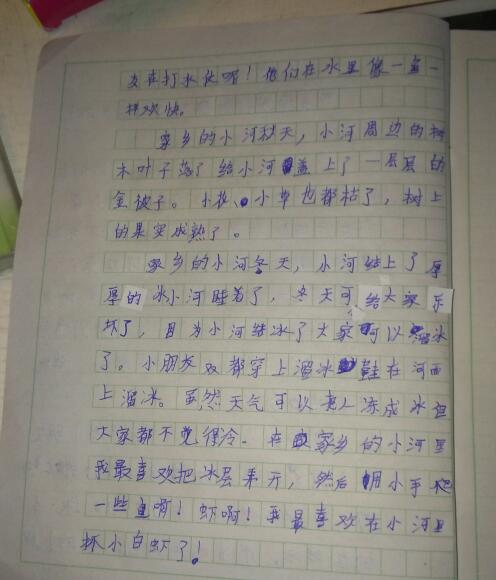 友在打水仗呢！他们在水里像一鱼一
样欢快。
家乡的小河秋天，小河周边的树
木叶子落了给小河盖上了一层层的
金被子。小花、小草也都枯了，树上
的果实成熟了。
家乡的小河冬天，小河结上了厚
厚的冰小河睡着了，冬天可给大家乐
坏了，因为小河结冰了大家可以溜冰
了。小朋友双都穿上溜冰鞋在河面
上溜冰。虽然天气可以把人冻成冰但
大家都不觉得冷。在家乡的小河里
我最喜欢把冰层弄开，然后用小手
一些鱼啊！虾啊！我最喜欢在小河里
抓小白虾了！